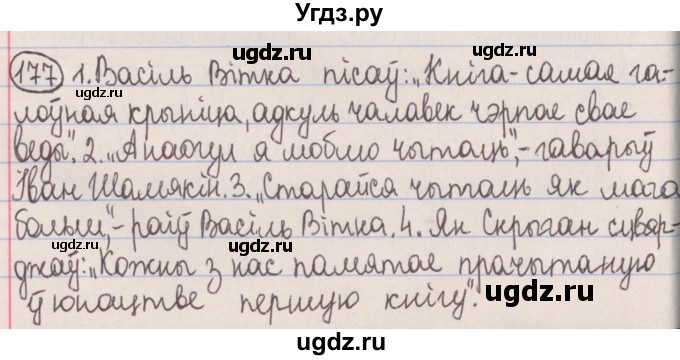 Угдз.ру
177 1. Васіль Вітка пісаў: „Кніга - самая га-
лоўная крыніца, адкуль чалавек чэрпае свае
веды". 2. „А наогул я люблю чытаць", - гаварыў
Іван Шамякін. 3. „Старайся чытаць як мага
больш", - раіў Васіль Вітка. 4. Ян Скрыган сцвяр-
джаў: „Кожны з нас памятае прачытаную
ў юнацтве першую кнігу".
ugdz.ru
ugdz.ru
ugdz.ru
ugdz.ru
ugdz.ru
ugdz.ru
ugdz.ru
ugdz.ru
ugdz.ru